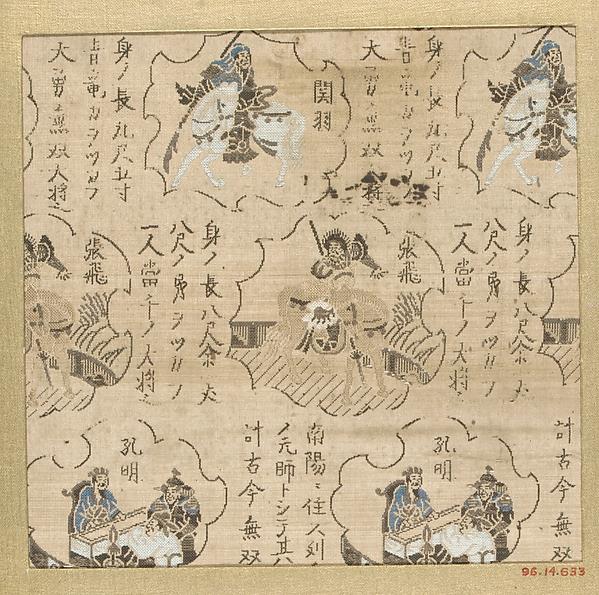 身ノ長九尺五寸
青竜刀ヲツカフ
大勇ニ無双大将
関羽
身ノ長九尺五寸
青竜刀ヲツカフ
大勇ニ無双大将
身ノ長八尺余丈
八尺ノ勇ヲツカフ
一人當千ノ大将
張飛
身ノ長八尺余丈
八尺ノ勇ヲツカフ
一人當千ノ大将
張飛
計古今無双
孔明
南陽ニ住人
ノ元師トシテ其
計古今無双
孔明
96.14.633